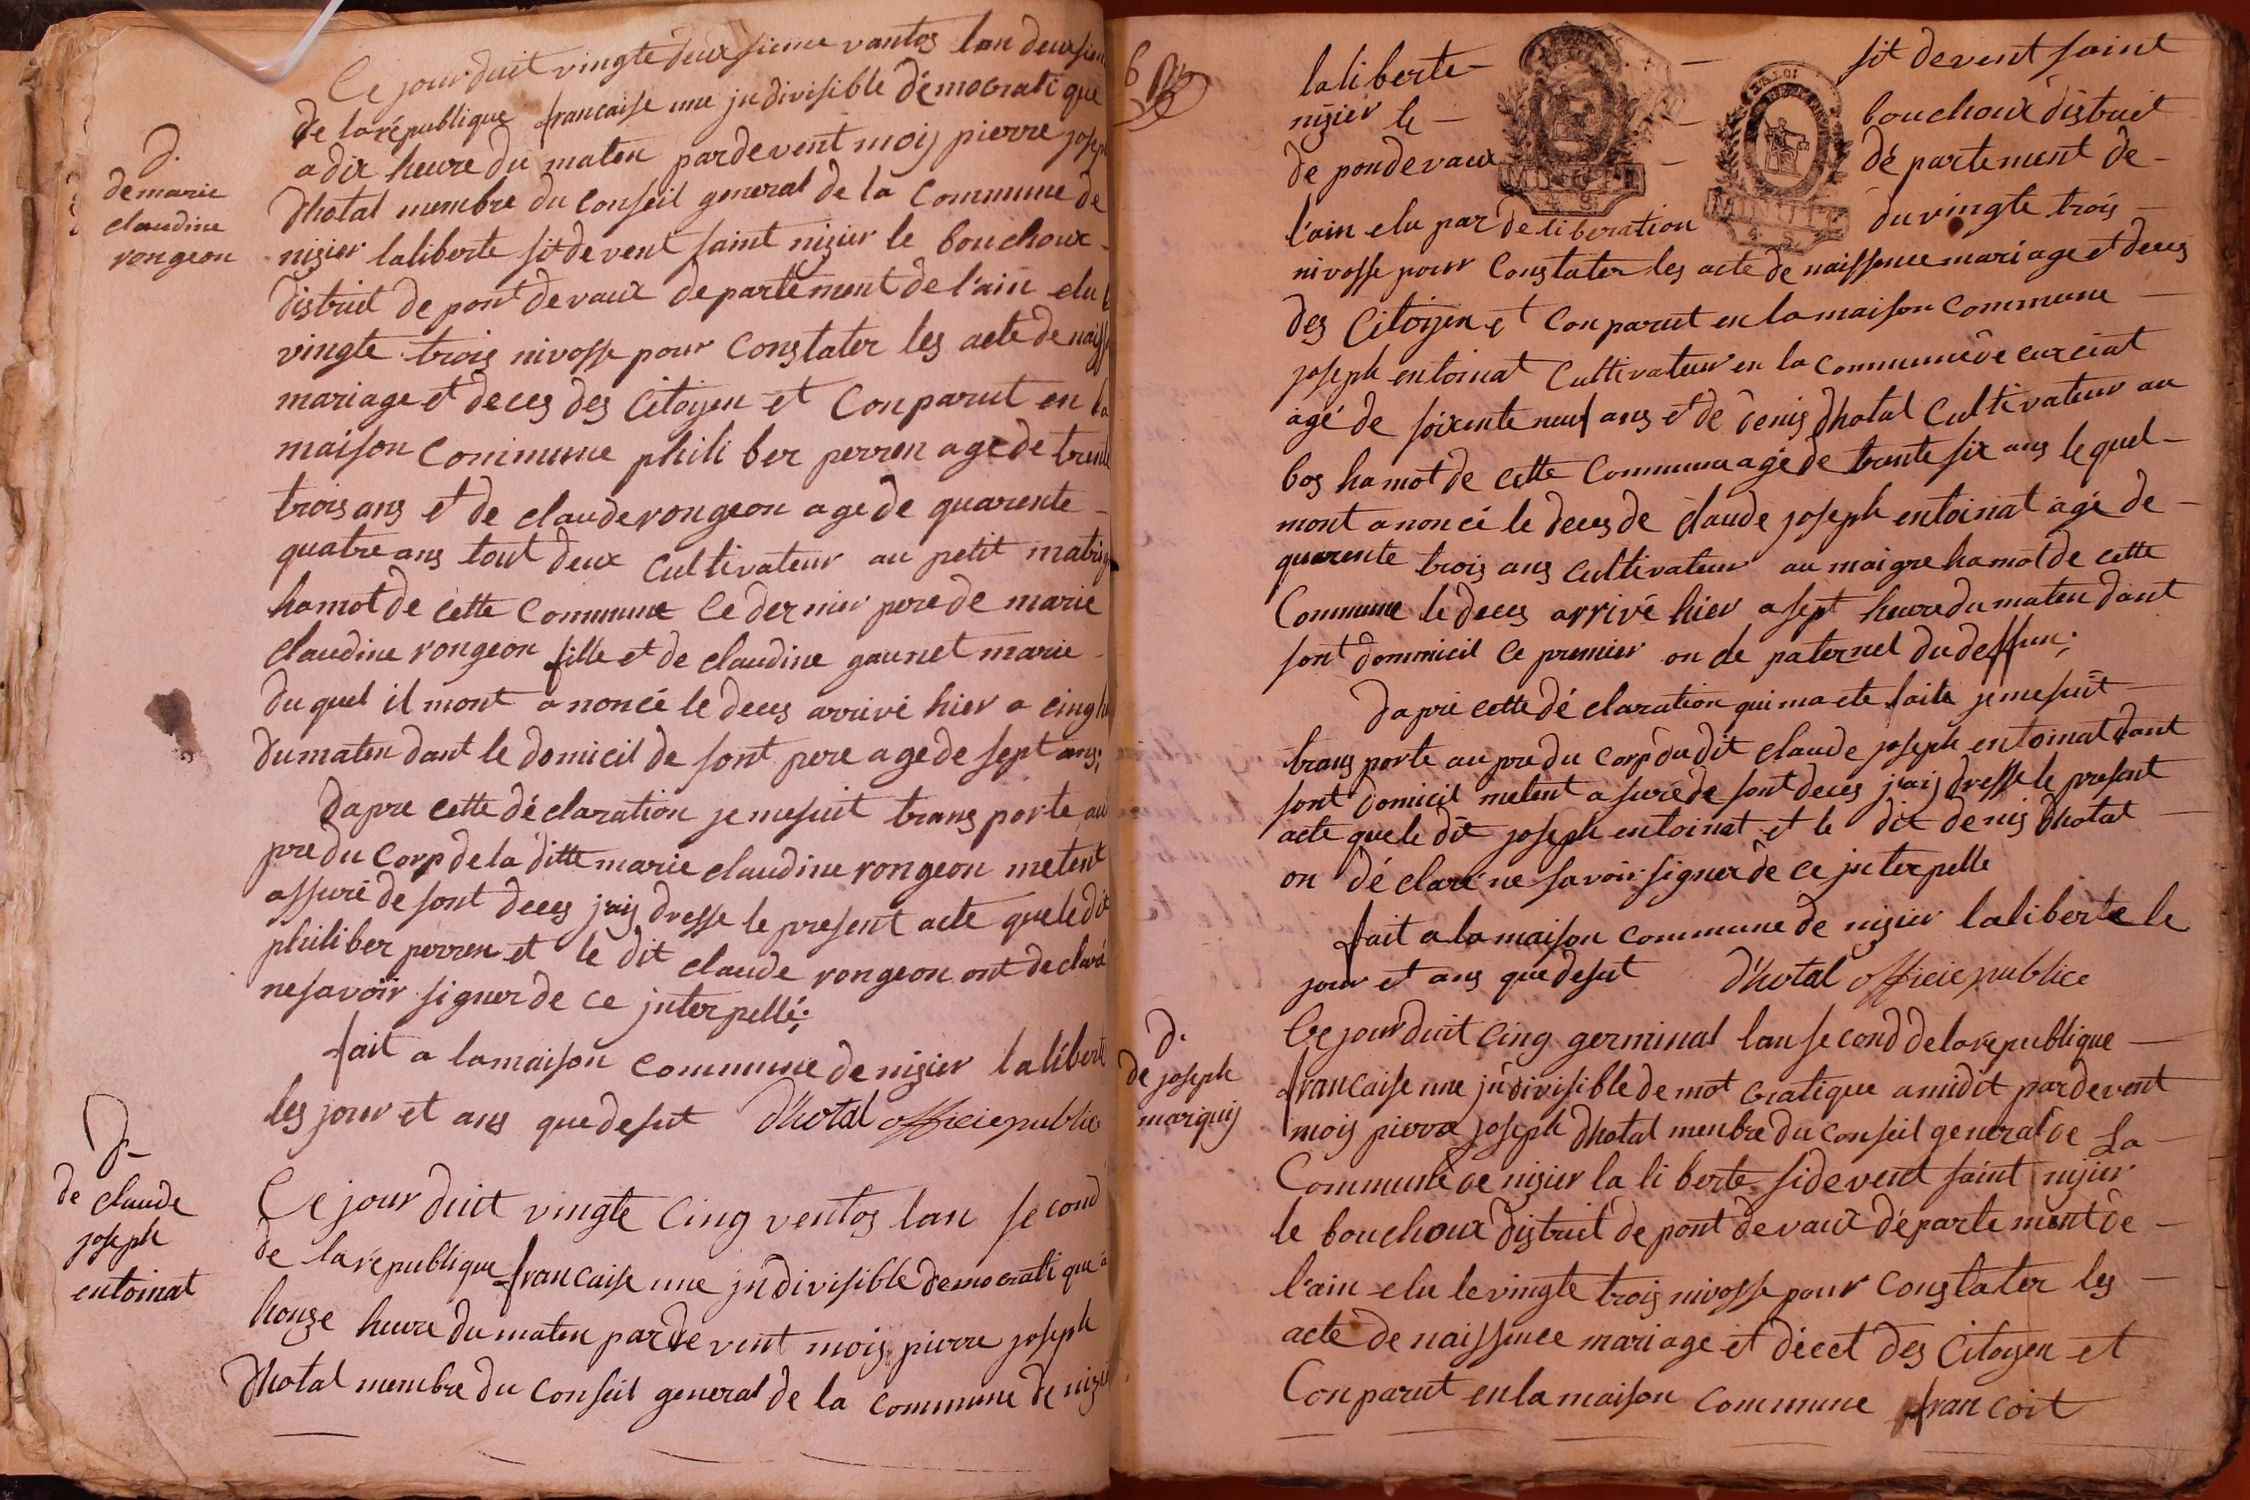 Ce jourduit vingte deuxsieme vantos lan deuxsiem
de la république francaise une jndivisible démocratique
a dix heure du maten pardevent mois pierre joseph
dhotal membre du conseil general de la commune de
nizier laliberte sit devent saint nizier le bouchoux
district de pont devaux departement de l'ain elu le
vingte trois nivosse pour constater les acte de naiss
mariage et deces des Citoyen et Conparut en la
maison commune phili ber perren age de trente
trois ans et de claude rongeon age de quarente
quatre ans tout deux cultivateur au petit
hamot de cette commune ce dernier pere de marie
claudine rongeon fille et de claudine gaunet marie
du quel il mont anoncé le deces arrivé hier a cinq h
du maten dant le domicil de sont pere age de sept ans;
dapre cette déclaration je mesuit trans porte au
pre du corp de la ditte marie claudine rongeon metent
assuré de sont deces jaij dresse le present acte que le dit
philiber perren et le dit claude rongeon ont declaré
ne savoir signer de ce jnterpellé;
fait a la maison commune de nizier laliberte
les jour et ans que desut dhotal officiepublic
Ce jour duit vingte cinq ventos lan second
de la république francaise une jndivisible democratique a
honze heure du maten pardevent mois pierre joseph
dhotal membre du conseil general de la commune de nizier
d.
de marie
claudine
rongeon
d.
de claude
joseph
entoinat
6
laliberte sit devent saint
nizier le bouchoux district
de pondevaux département de
l'ain elu par deliberation du vingte trois
nivosse pour constater les acte de naissence mariage et deces
des Citoyen et Conparut en la maison commune
joseph entoinat cultivateur en la commune de curciat
agé de soixente neuf ans et de denis dhotal cultivateur au
bos hamot de cette commune agé de trente six ans lequel
mont anoncé le deces de claude joseph entoinat agé de
quarente trois ans cultivateur au maigre hamot de cette
commune le deces arrivé hier a sept heure du maten dant
sont dommicil ce premier on cle paternel du deffun;
dapré cette déclaration qui ma ete faite je mesuit
trans porte au pre du corp du dit claude joseph entoinat dant
sont domicil metent a suré de sont deces jaij dresse le present
acte que le dit joseph entoinat et le dit denis dhotal
on déclaré ne savoir signer de ce jnterpelle
fait a la maison commune de nizier laliberte le
jour et ans que desut d'hotal officiepublice
Ce jourduit cinq germinal lan second de la republique
francaise une jndivisible demot cratique a midit pardevent
mois pierre joseph dhotal menbre du conseil general de La
Commune de nizier la li berte sidevent saint nizier
le bouchoux district de pont devaux département de
l'ain elu le vingte trois nivosse pour constater les
acte de naissence mariage et décet des Citoyen et
Conparut en la maison commune francoit
d.
de joseph
marquis
MINUTE
4 S.
LA LOI
MINUTE
4 S.